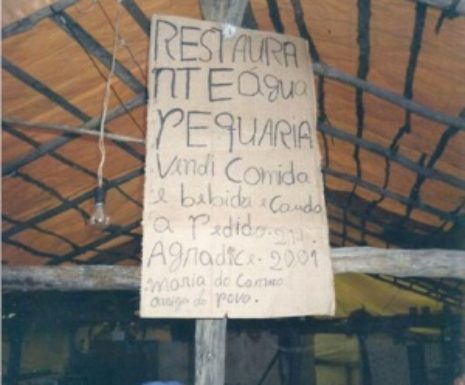 RESTAURA
NTE água
PEQUARIA
Vendi Comida
e bebida e Caudo
a Pedido.
Agradice. 2001
maria do Carmo
amiga do Povo.